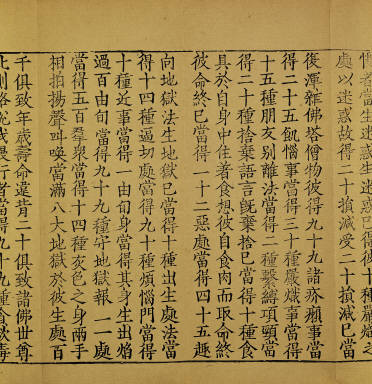 者當生迷惑生迷惑已得彼十種嚴熾之
處以迷惑故得二十損減受二十損減已當
復渾雜佛塔僧物彼得九十九諸疥癩事當
得二十五飢惱事當得三十種嚴熾事當得
十五種朋友别離法當得二種繫縛項頸當
得二十種捨棄語言旣棄捨已當得十種食
具於自身中住著食想彼自食肉而取命終
彼命終已當得一十二惡處當得四十五趣
向地獄法生地獄已當得十種出生處法當
得十四種逼切處當得九十種煩惱門當得
十種近事當得一由旬身當得其身生出焰
過百由旬當得九十九種守地獄報一一處
當得五百羣衆當得十四種灰色之身兩手
相拍揚聲叫喚當滿八大地獄於彼生處百
千俱致年歲壽命還背二十俱致諸佛世尊
行者當得九十九種貪欲毒